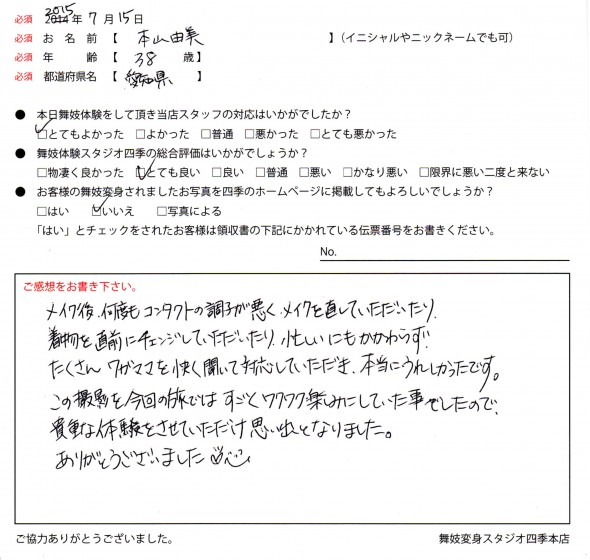 2015
必須 2014年 7月 15日
必須 お 名 前【 本山由美 】(イニシャルやニックネームでも可)
必須 年 齢【 38 歳】
必須 都道府県名【 愛知県 】
● 本日舞妓体験をして頂き当店スタッフの対応はいかがでしたか?
☑とてもよかった □よかった □普通 □悪かった □とても悪かった
● 舞妓体験スタジオ四季の総合評価はいかがでしょうか?
□物凄く良かった ☑とても良い □良い □普通 □悪い □かなり悪い □限界に悪い二度と来ない
● お客様の舞妓変身されましたお写真を四季のホームページに掲載してもよろしいでしょうか?
□はい ☑いいえ □写真による
「はい」とチェックをされたお客様は領収書の下記にかかれている伝票番号をお書きください。
No.
ご感想をお書き下さい。
メイク後、何度もコンタクトの調子が悪く、メイクを直していただいたり、
着物を直前にチェンジしていただいたり、忙しいにもかかわらず、
たくさん ワガママを快く聞いて対応していただき、本当にうれしかったです。
この撮影を今回の旅では すごくワクワク楽しみにしていた事でしたので、
貴重な体験をさせていただけ思い出となりました。
ありがとうございました♡
ご協力ありがとうございました。 舞妓変身スタジオ四季本店